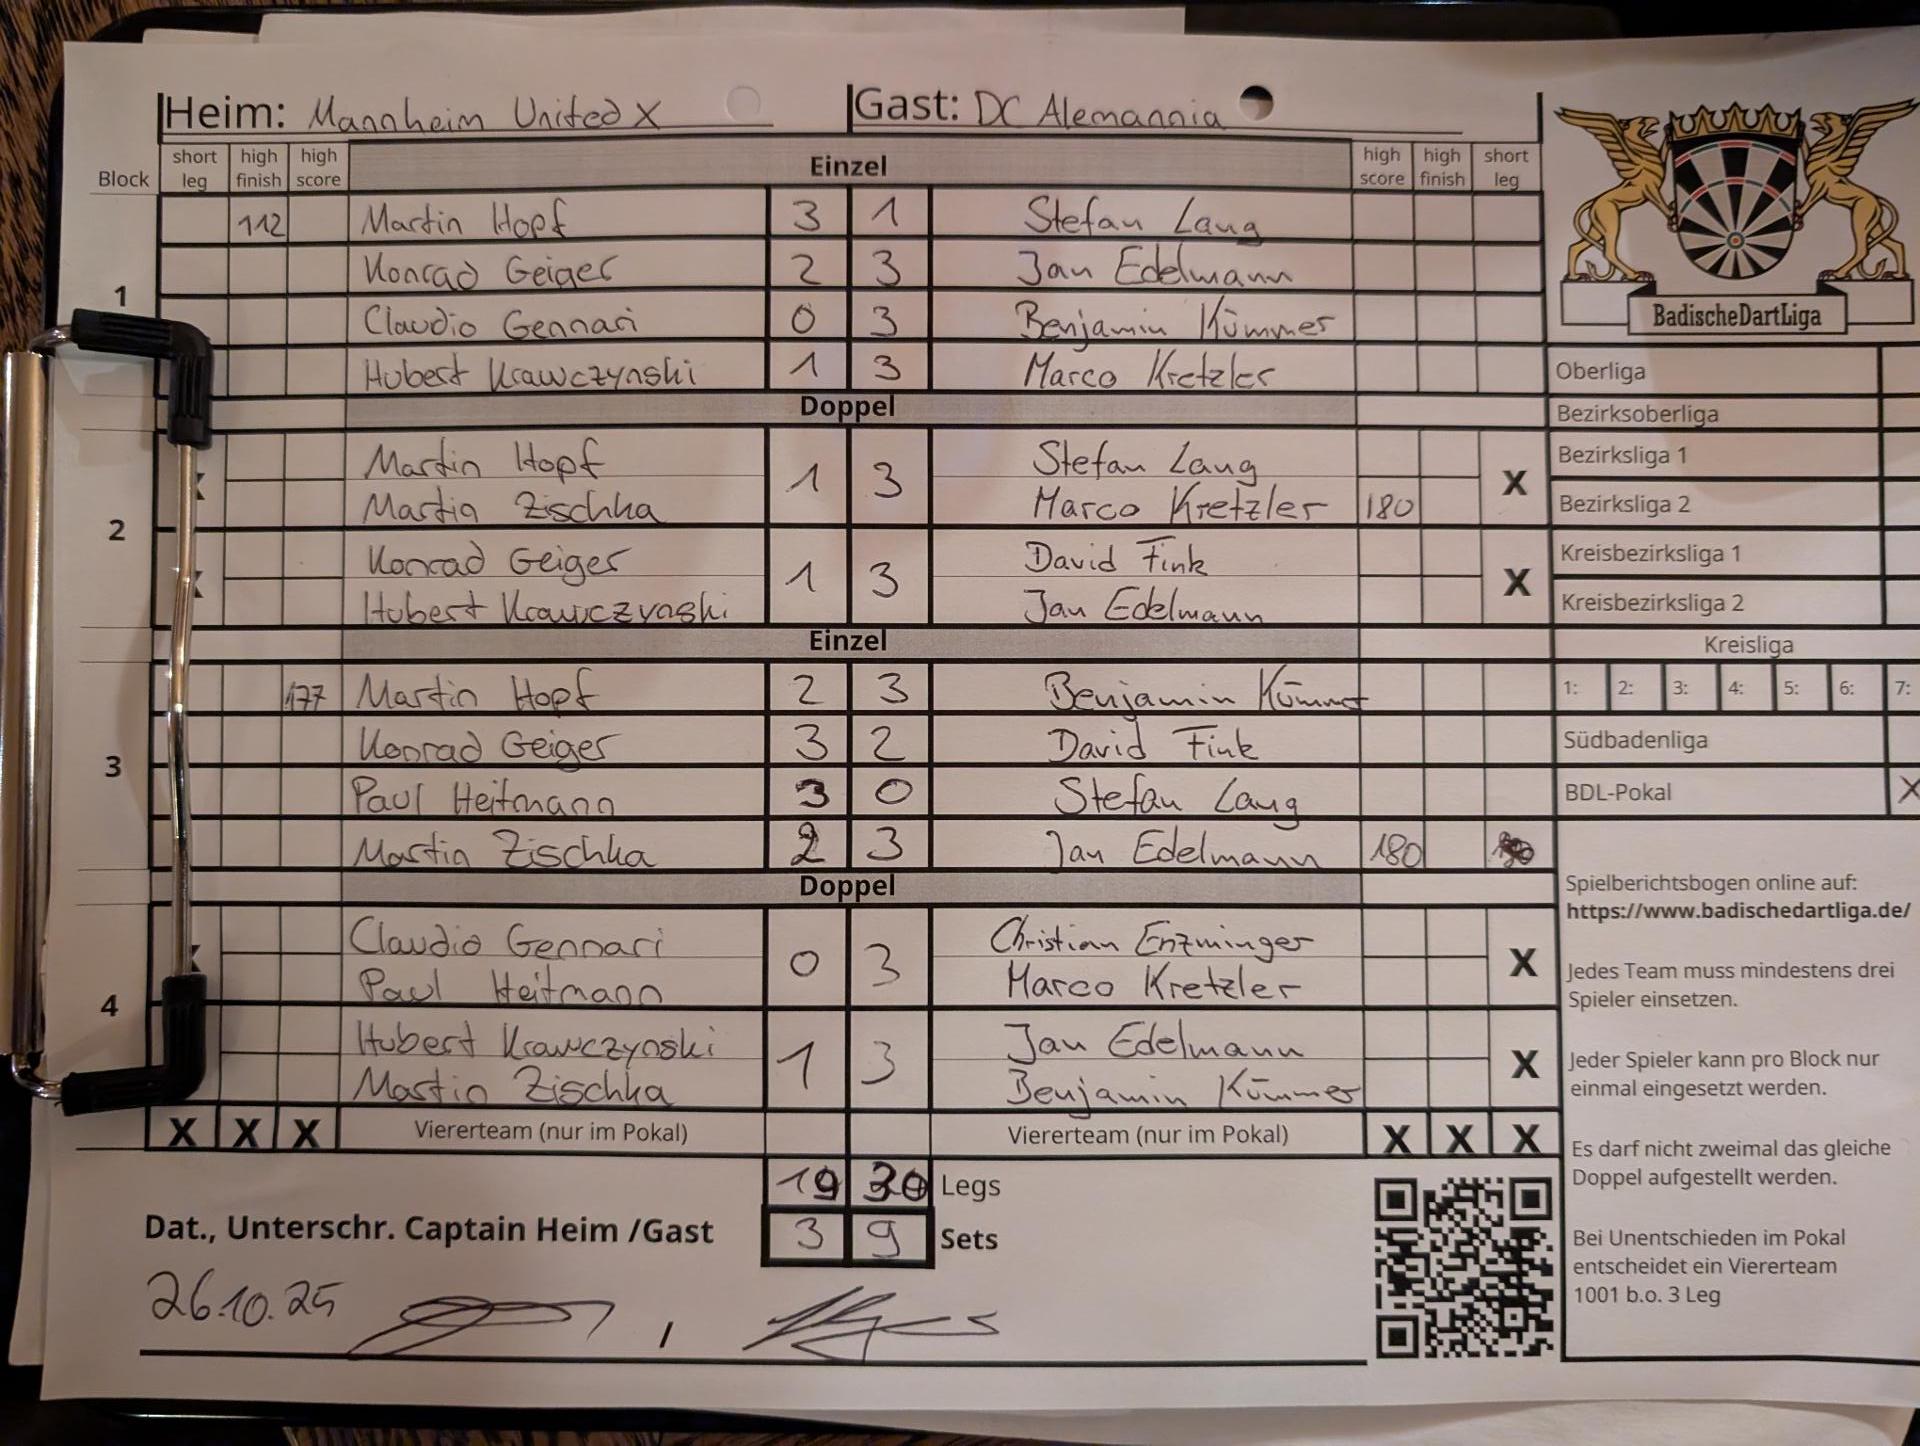 Heim: Mannheim United X Gast: DC Alemannia
Block short leg high finish high score Einzel high score high finish short leg
1
112 Martin Hopf 3 1 Stefan Lang
Konrad Geiger 2 3 Jan Edelmann
Claudio Gennari 0 3 Benjamin Kümmer
Hubert Krawczynski 1 3 Marco Kretzler
Doppel
2
Martin Hopf 1 3 Stefan Lang X
Martin Zischka Marco Kretzler 180
Konrad Geiger 1 3 David Fink X
Hubert Krawczynski Jan Edelmann
Einzel
3
177 Martin Hopf 2 3 Benjamin Kümmer
Konrad Geiger 3 2 David Fink
Paul Heitmann 3 0 Stefan Lang
Martin Zischka 2 3 Jan Edelmann 180
Doppel
4
Claudio Gennari 0 3 Christian Enzminger X
Paul Heitmann Marco Kretzler
Hubert Krawczynski 1 3 Jan Edelmann X
Martin Zischka Benjamin Kümmer
X X X Viererteam (nur im Pokal) Viererteam (nur im Pokal) X X X
19 30 Legs
3 9 Sets
Dat., Unterschr. Captain Heim /Gast
26.10.25 ,
BadischeDartLiga
Oberliga
Bezirksoberliga
Bezirksliga 1
Bezirksliga 2
Kreisbezirksliga 1
Kreisbezirksliga 2
Kreisliga
1: 2: 3: 4: 5: 6: 7:
Südbadenliga
BDL-Pokal X
Spielberichtsbogen online auf:
https://www.badischedartliga.de/
Jedes Team muss mindestens drei
Spieler einsetzen.
Jeder Spieler kann pro Block nur
einmal eingesetzt werden.
Es darf nicht zweimal das gleiche
Doppel aufgestellt werden.
Bei Unentschieden im Pokal
entscheidet ein Viererteam
1001 b.o. 3 Leg